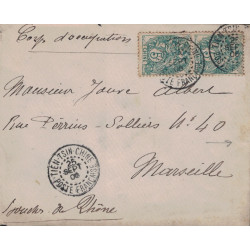 Corps d'occupation
Monsieur Jouve Albert
Rue Perrins-Solliers N° 40
Marseille
Bouches du Rhône
TIEN-TSIN-CHINE
SEPT
POSTE FRANÇAISE
5